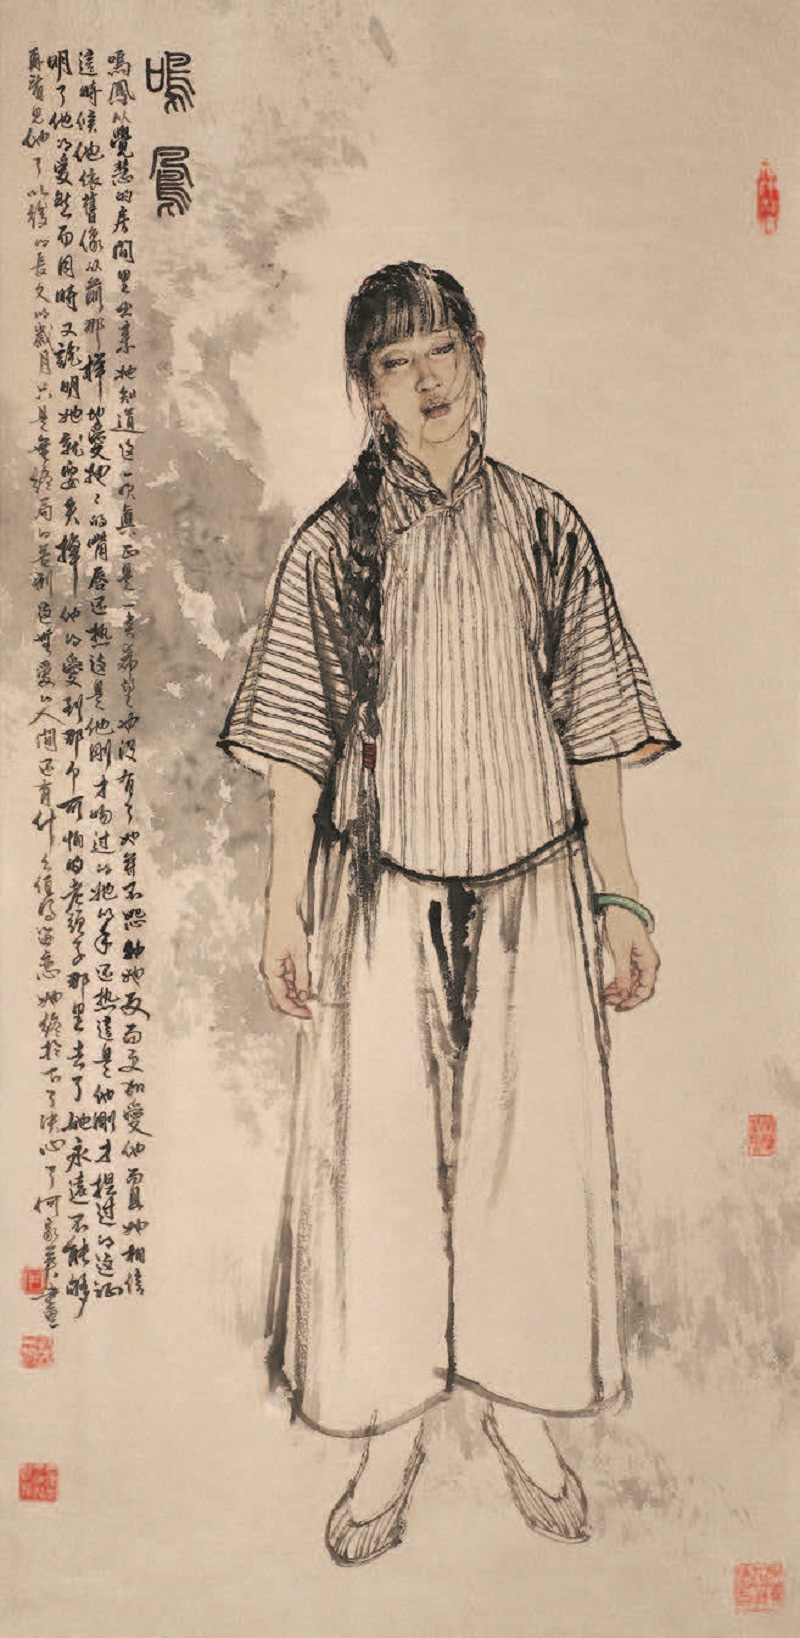 鳴鳳
鳴鳳从覺慧的房間里出來她知道這一次真正是一点希望也没有了她并不怨他她反而更加愛他而且她相信
這時候他依舊像从前那樣地愛她她的嘴唇还热這是他剛才吻过的她的手还热這是他剛才捏过的這証
明了他的愛然而同時又說明她就要失掉他的愛到那个可怕的老頭子那里去了她永遠不能够
再看見他了以後的長久的歲月只是無終局的苦刑這無愛的人間还有什么值得留恋她終於下了决心了何家英畫